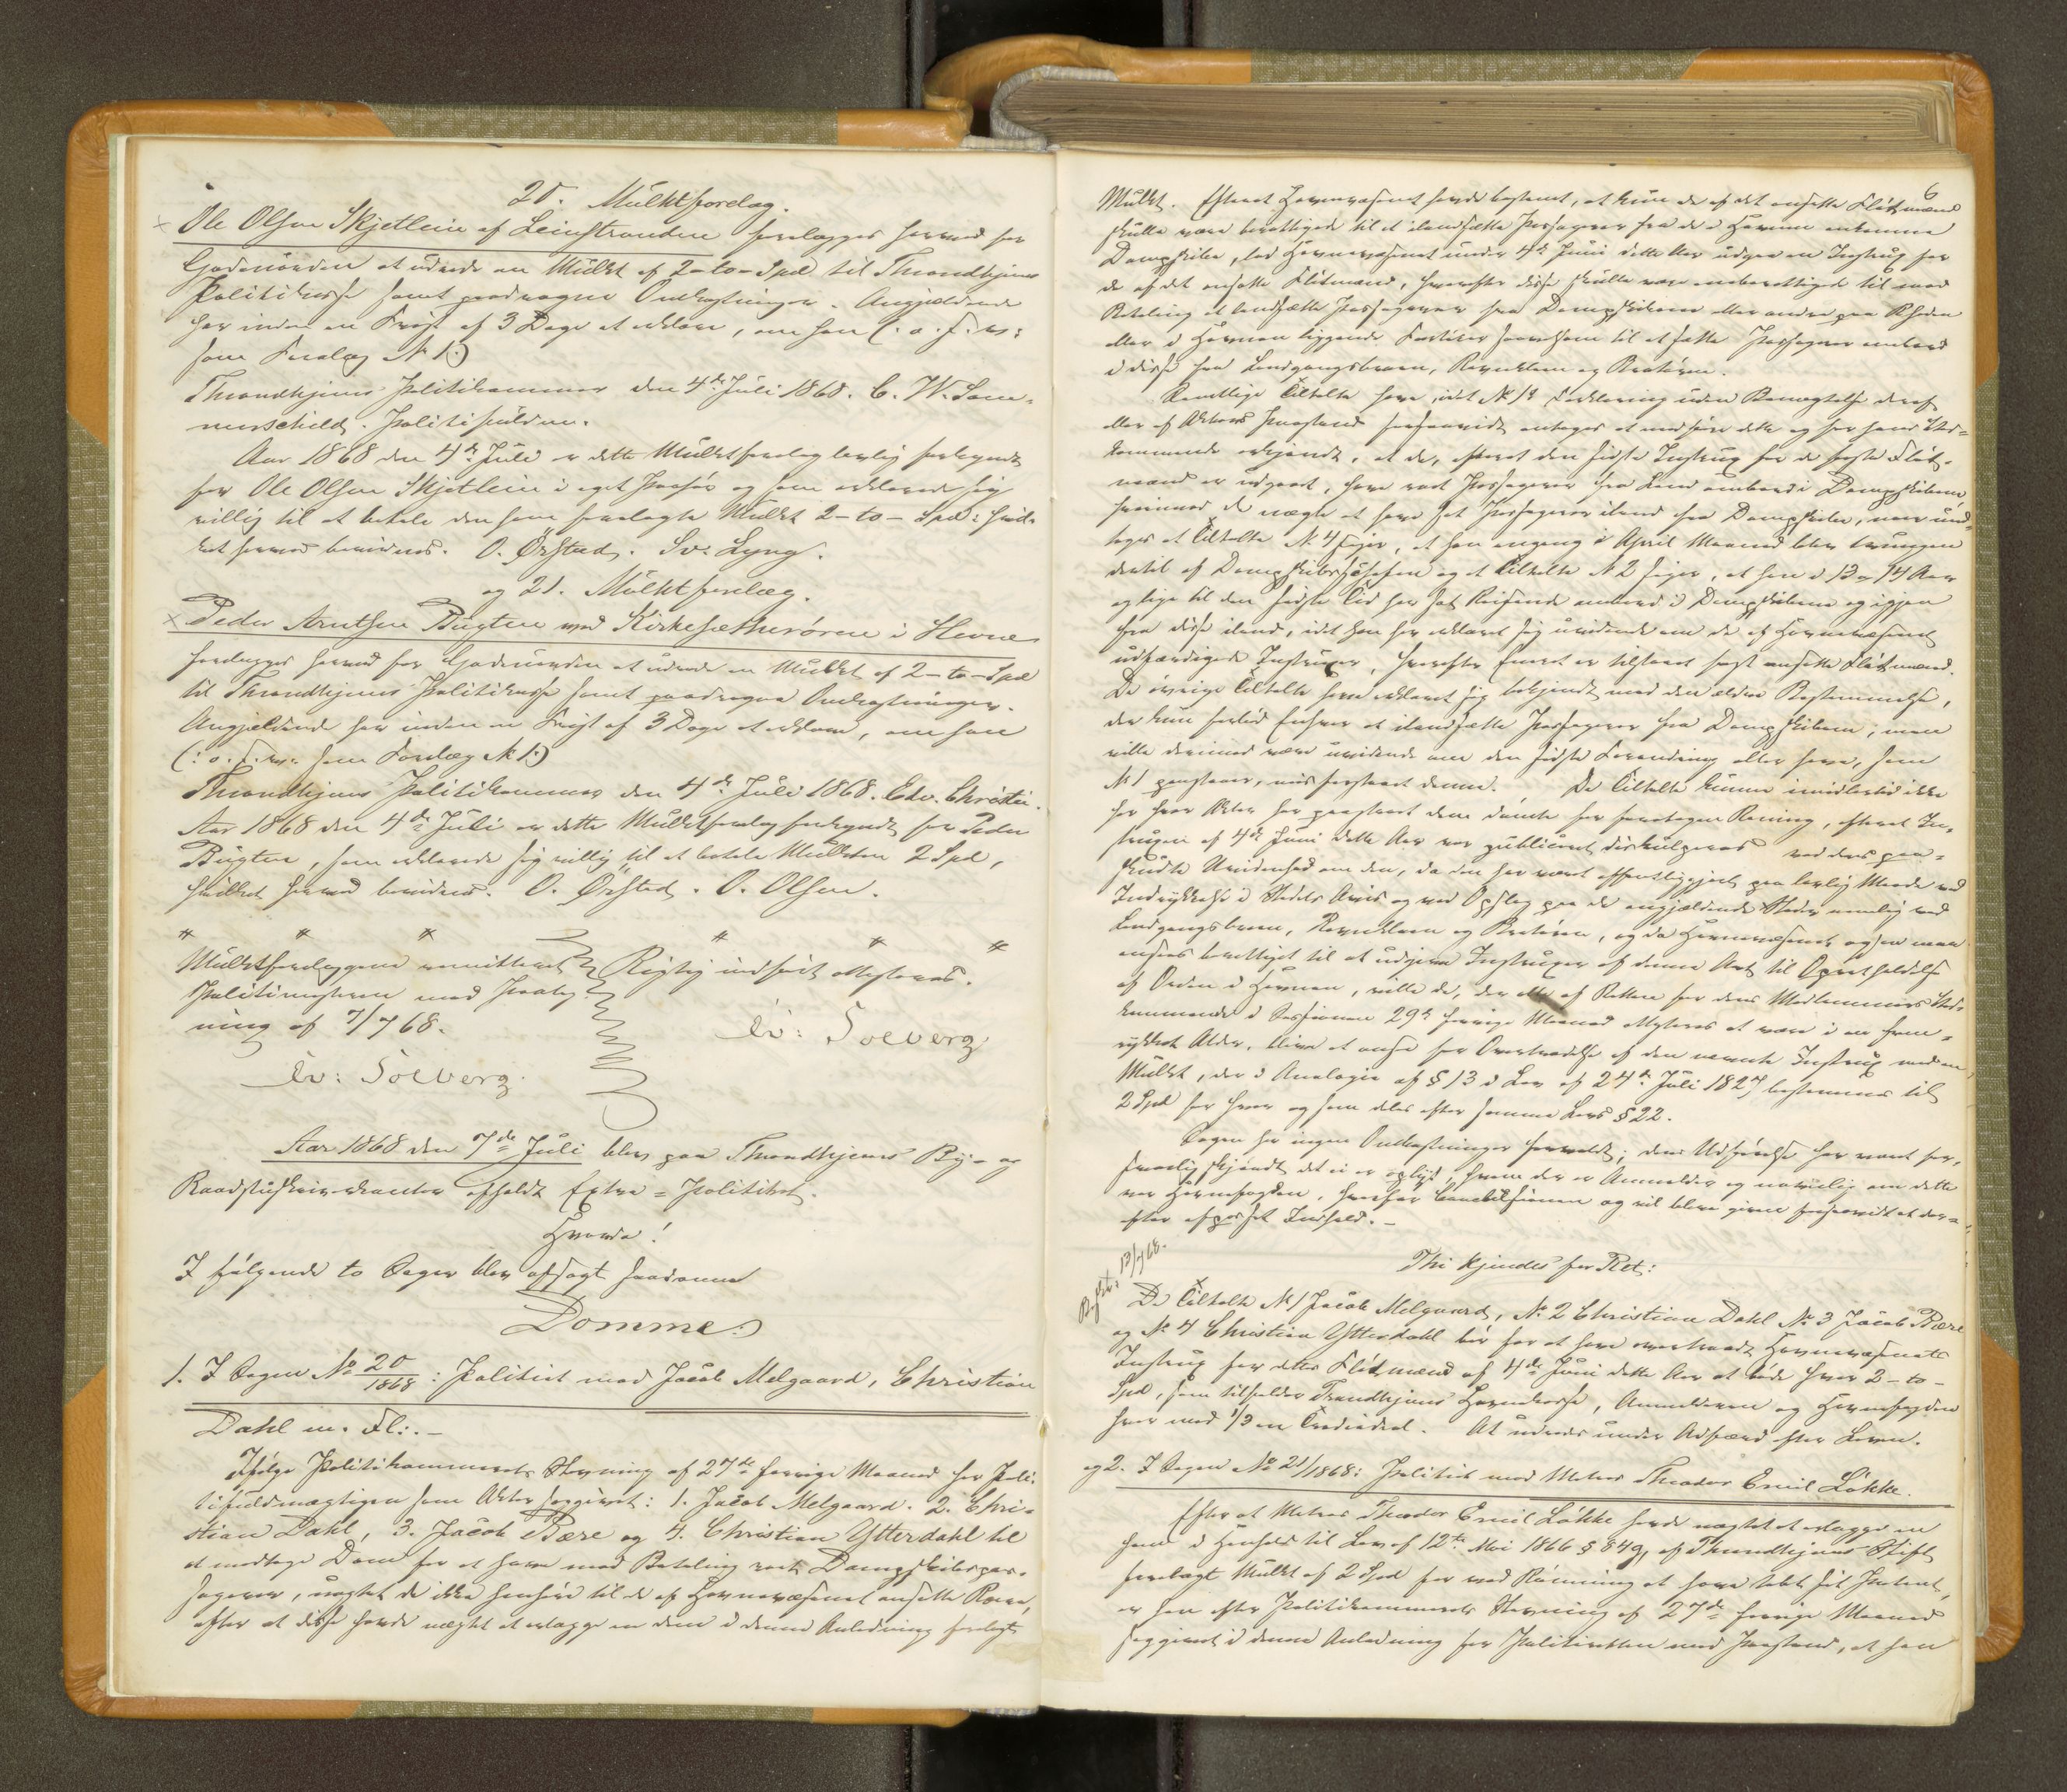 20. Mulktforelæg.
Ole Olsen Skjetlein af Leinstranden forelægges herved for
Godmorden at udrede en Mulkt af 2-to-Spd til Throndhjems
Politikasse samt paadragne Omkostninger. Angjældende
har inden en Frist af 3 Dage at erklære, om han (: o. s. v.:
som Forelæg N 1:)
Throndhjems Politikammer den 4de Juli 1868. C. W. Som-
merschield. Politifuldm.
Aar 1868 den 4de Juli er dette Mulktforelæg lovlig forkyndt
for Ole Olsen Skjetlein i eget Paahør og som erklærede sig
villig til at betale den ham forelagte Mulkt 2-to-Spd: hvil-
ket herved bevidnes. O. Ørsted. Sv. Lyng.
og 21. Mulktforelæg.
Peder Arntsen Bugten ved Kirkesætherøren i Hevne
forelægges herved for at udrede en Mulkt af 2-to-Spd
til Throndhjems Politikasse samt paadragne Omkostninger.
Angjældende har inden en Frist af 3 Dage at erklære, om han
(: o. s. v. som Forelæg N 1:)
Throndhjems Politikammer den 4de Juli 1868. Edv. Christie.
Aar 1868 den 4de Juli er dette Mulktforelæg forkyndt for Peder
Bugten, som erklærede sig villig til at betale Mulkten 2 Spd,
hvilket herved bevidnes. O. Ørsted. O. Olsen.
Mulktforelæggene remitteret Rigtig indført attesteres.
Politimesteren med Paateg-
ning af 7/7 68. Ev: Solberg
Ev: Solberg.
Aar 1868 den 7de Juli blev paa Throndhjems By- og
Raadstuskriverkontor afholdt Extra-Politiret.
Hvorda!
I følgende to Sager blev afsagt saadanne
Domme:
1. I Sagen No 20/1868: Politiet mod Jacob Melgaard, Christian
Dahl m. Fl:.-
Ifølge Politikammerets Stevning af 27de forrige Maaned har Poli-
tifuldmægtigen som Aktor saggivet: 1. Jacob Melgaard. 2. Chri-
stian Dahl, 3. Jacob Bære og 4. Christian Ytterdahl til
at modtage Dom for at have mod Betaling roet Dampskibspas-
sagerer, uagtet de ikke henhøre til de af Havnevæsenet ansatte Roere,
efter at disse havde nægtet at erlægge en dem i denne Anledning forelagt
6
Mulkt. Efterat Havnevæsenet havde bestemt, at kun de af det ansatte Flødmænd
skulle være berettigede til at ilandsætte Passagerer fra de i Havnen ankomne
Dampskibe, lod Havnevæsenet under 4de Juni dette Aar udgaa en Instrux for
de af det ansatte Flødmænd, hvorefter disse skulle være eneberettigede til mod
Betaling at landsætte Passagerer fra Dampskibene eller andre paa Rheden
eller i Havnen liggende Fartøier saavelsom til at sætte Passagerer ombord
i disse fra Landgangsbroen, Ravnkloen og Brattøren.
Samtlige Tiltalte have, idet N 1's Forklaring uden Benægtelse deraf
eller af Aktors Paastand forsaavidt antages at medføre dette og for hans Ved-
kommende erkjendt, at de, efterat den sidste Instrux for de faste Flød-
mænd er udgaaet, have roet Passagerer fra Land ombord i Dampskibene
hvorimod de nægte at have sat Passagerer iland fra Dampskibe, naar und-
tages at Tiltalte N. 4 siger, at han engang i April Maaned blev tvungen
dertil af Dampskibs og at Tiltalte N 2 siger, at han i 13 à 14 Aar
og lige til den sidste Tid har sat Reisende ombord i Dampskibene og igjen
fra disse iland, idet han har erklæret sig uvidende om de af Havnevæsenet
udfærdigede Instruxer, hvorefter Eneret er tilstaaet fast ansatte Flødmænd.
De øvrige Tiltalte have erklæret sig bekjendt med den ældre Bestemmelse,
der kun forbød Enhver at ilandsætte Passagerer fra Dampskibene, men
ville derimod være uvidende om den sidste Forandring eller have, som
N 1 paastaaer, misforstaaet denne. De Tiltalte kunne imidlertid ikke
for hvad Aktor har paastaaet dem dømte for foretagen Roning, efterat In-
struxen af 4de Juni dette Aar var publiceret diskulperes ved deres paa-
skudte Uvidenhed om den, da den har været offentliggjort paa lovlig Maade ved
Indrykkelse i Stedets Avis og ved Opslag paa de angjældende Steder nemlig ved
Landgangsbroen, Ravnkloen og Brattøren, og da Havnevæsenet ogsaa maa
ansees berettiget til at udgive Instruxer af denne Art til Opretholdelse
af Orden i Havnen, ville de, der af Retten for dens Medlemmers Ved-
kommende i Sessionen 29de forrige Maaned attesteres at være i en frem-
rykket Alder, blive at ansee for Overtrædelse af den nævnte Instrux med en
Mulkt, der i Analogie af § 13 i Lov af 24de Juli 1827 bestemmes til
2 Spd for hver og som deles efter samme Lovs § 22.
Sagen har ingen Omkostninger forvoldt; dens Udførelse har været for-
svarlig skjøndt det ei er oplyst, hvem der er Anmelder og navnlig om dette
var Havnefogden, hvorfor og vil blive givne forsaavidt et der-
efter afpasset Indhold.-
Thi kjendes for Ret:
13/7 68.
De Tiltalte N 1 Jacob Melgaard, No 2 Christian Dahl No 3 Jacob Bære
og No 4 Christian Ytterdahl bør for at have overtraadt Havnevæsenets
Instrux for dets Flødmænd af 4de Juni dette Aar at bøde hver 2-to-
Spd, som tilfalder Trondhjems Havnekasse, Anmelderen og Havnefogden
hver med 1/3 en Trediedeel. At udredes under Adfærd efter Loven.
og 2. I Sagen No 21/1868: Politiet mod Matros Theodor Emil Løkke.
Efter at Matros Theodor Emil Løkke havde nægtet at erlægge en
ham i Henhold til Lov af 12te Mai 1866 § 84g, af Throndhjems Stift
forelagt Mulkt af 2 Spd for ved Rømning at have tabt sit Patent,
er han efter Politikammerets Stevning af 27de forrige Maaned
saggivet i denne Anledning for Politiretten med Paastand, at han